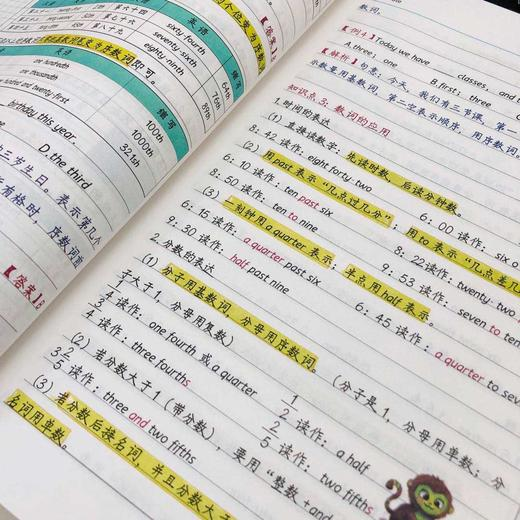 英语
缩写
第六十四
sixty fourth
64th
第七十六
seventy sixth
76th
第八十九
eighty-ninth
89th
序数词即可。
英语
缩写
one hundredth
100th
one thousandth
1000th
hundred and twenty-first
321st
birthday this year.
D. the third
三岁生日。表示第几个
有格时，序数词前
【答案】B
数词。
【例1】Today we have ___ classes, and
A. three; one
B. first; three
【解析】句意：今天，我们有三节课，第一
示数量用基数词，第二空表示顺序，用序数词。
知识点3：数词的应用
1. 时间的表达
(1) 直接读数字：先读时数，后读分钟数。
8: 42 读作: eight forty-two
6: 00
(2) 用past表示“几点过几分”；用to表示“几点差几
6: 10 读作: ten past six
8: 50 读作: ten to nine
8: 22读作: twenty-two
(3) 一刻钟用a quarter表示；半点用half表示。
6: 15 读作: a quarter past six
9: 53 读作: seven to ten
9: 30 读作: half past nine
6: 45 读作: a quarter to seven
2. 分数的表达
(1) 分子用基数词，分母用序数词。（分子是1，分母用单数；分
子大于1，分母用复数）
1/4 读作: one fourth 或 a quarter
1/2 读作: a half
3/4 读作: three fourths
2/5 读作: two fifths
(2) 若分数大于1（带分数），要用“整数+and
3 2/5 读作: three and two fifths
(3) 若分数后接名词，并且分数大于
名词用单数。